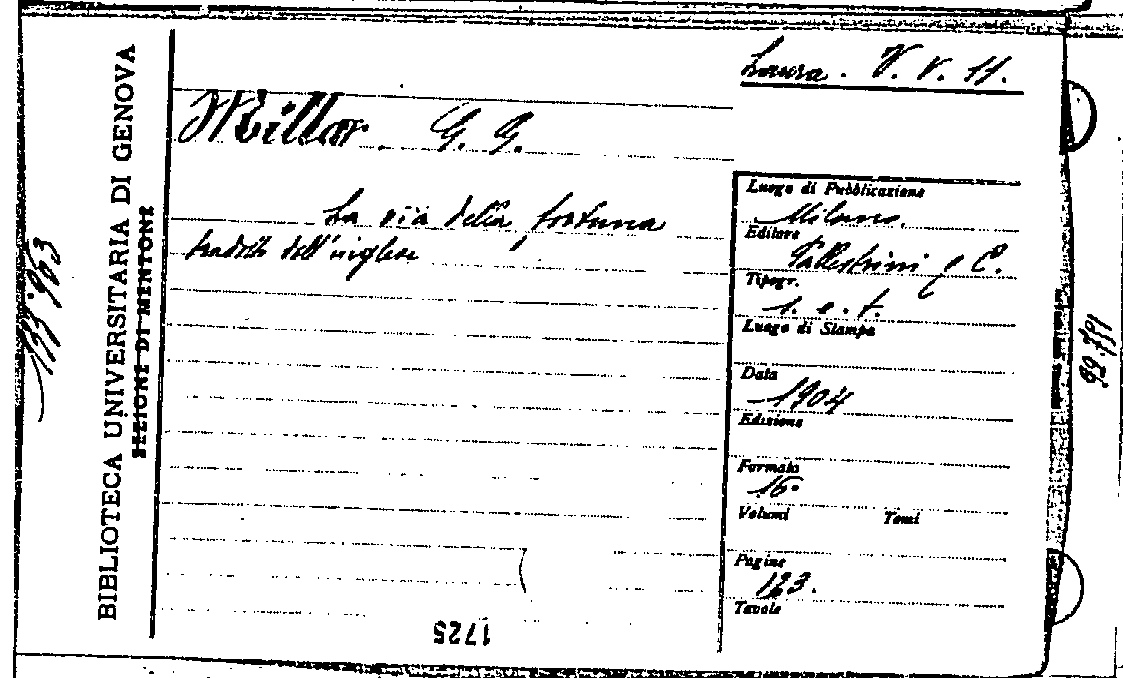 Laura. V. V. 11.
Millar. G. G.
La via della fortuna
tradotto dall'inglese
Luogo di Pubblicazione
Milano.
Editore
Pallestrini e C.
Tipogr.
s. e. t.
Luogo di Stampa
Data
1904
Edizione
Formato
16°
Volumi Tomi
Pagine
123.
Tavole
1725
BIBLIOTECA UNIVERSITARIA DI GENOVA